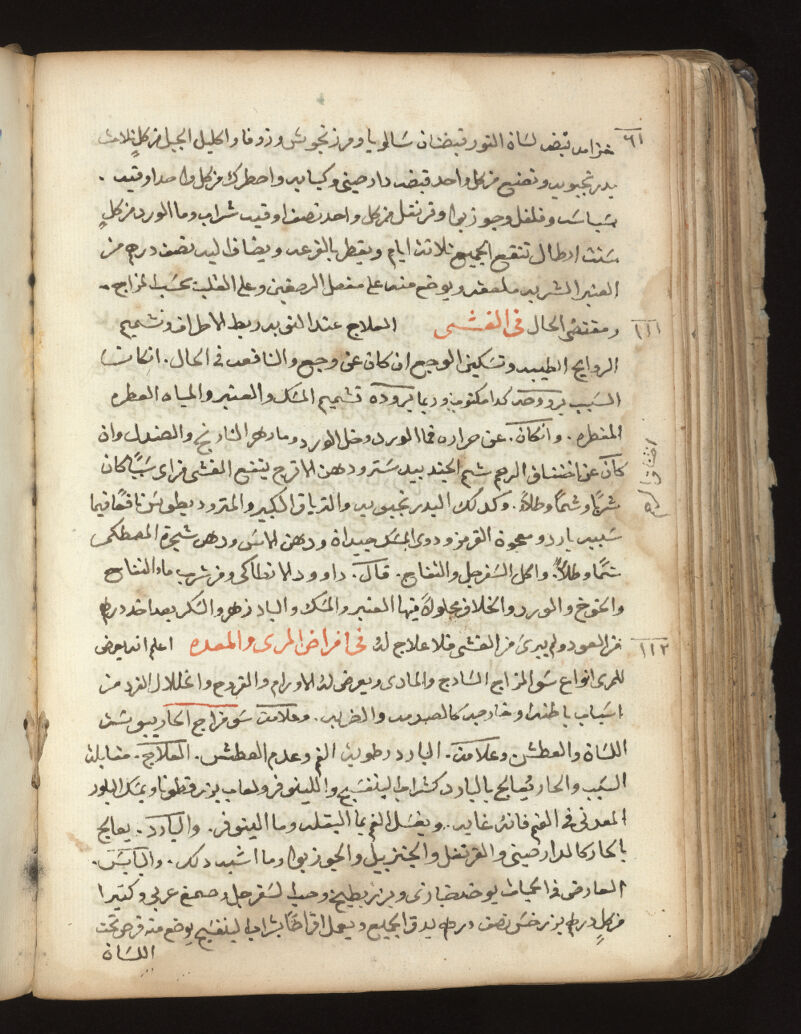 خزامه قبضه لسان الثور قبضتان سالويا ومرزنجوش وزوفا واكليل الجبل من كل ثلاث
بدرنجبويه وتصنع من كل واحد قبضه دارصيني وكبابه واحطرك من كل واحد اوقيه .
بسباسه وفلفل وجوزبوا وقرنفل من كل واحد نصف اوقيه شراب وما الورد من كل
ستت ارطال تنقع الجميع ثلاثت ايام ويقطر بالقرعه ويضاف اليه نصف درهم من
العنبر الشربه ملعقه ويوضع منه على مفصل الرصغين وعلى القلب بحسب المزاج .
ومقتضى الحال في الغشى العلاج عند النوبه ربط الاطراف وتشميم
الروايح الطيبه وتسكين الوجع ان كان عن وجع والنافعه في الحال . ان كانت
السبب برودة تشميم المسك والعنبر والمياه العطره
المقطره . وان كان . عن حراره فما الورد وخل الورد وما زهر النارنج والصندل وان
كان عن اختناق الرحم شم الجند بيدستر ودهن الاترج ينفع الغشى من اى سبب كان
شربا وشما وطلاء . وكذلك البدرنجبويه والترياق الكبير والمترود يطوس نافعا فيما
سببه بارد ومعجون القرمز ودوى المسك جيدان ودهن الاس ودهن شجرة المصطكى
شما وطلاء . واكل السفرجل والتفاح . قال . داوود الانطاكى ومن شرب ماء التفاح
والخوخ والورد والخلاف محلولا فيها العنبر والمسك والبادزهر والسكر بعد اخذ درهم
من العود ولم يبرئ من الغشى فلا علاج له في امراض المرى والمعده اعلم انه يعرض
للمرى انواع سو المزاج السادج والمادى ويعرض له الاورام والقروح وانحلال الفرد من
اسباب باطنه وخارجه كالصدمه والضربه . وعلامت سو مزاج الحار يبوست
اللسان والعطش وعلامت . البارد رطوبت الفم وعدم العطش . العلاج . مقابلت
السبب والحار يعالج بالبارد كشراب البنفسج والللينوفر ولعاب بزر قطونا ويمسك البلور
المعدنى في الفم فانه غايه . ويغسل الفم بما البقله وما الينوفر . والبارد . يعالج
بالحار كالدارصيني والقرنفل والجنزبيل والجوزبوا وما اشبه دلك . واليابس .
العارض في الحميات يوخذ خيارى وبزر بطيخ وحب السفرجل وصمغ عربي وكثيرا
من كل درهم بزر خس نصف درهم يدق الجميع ويعمل اقراصا بشراب البنفسج يوضع منه قرص تحت
اللسان
١١١
١١٢
اختناق الرحم